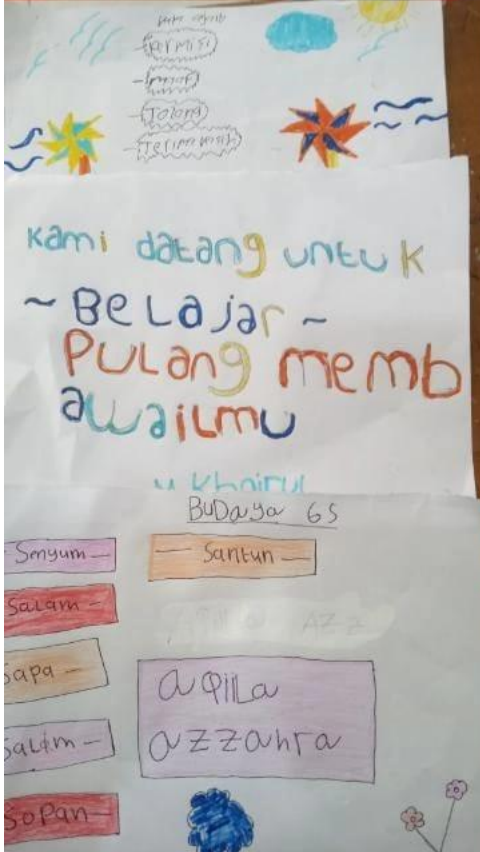 - Permisi
- maaf
- Tolong
- Terima kasih
Kami datang untuk
~ BeLajar ~
PuLang memb
awaiLmu
Khairul
BuDaya 6S
Smyum —
— Santun —
SaLam -
Sapa —
SaLim —
SoPan —
aqiLLa
azzahra